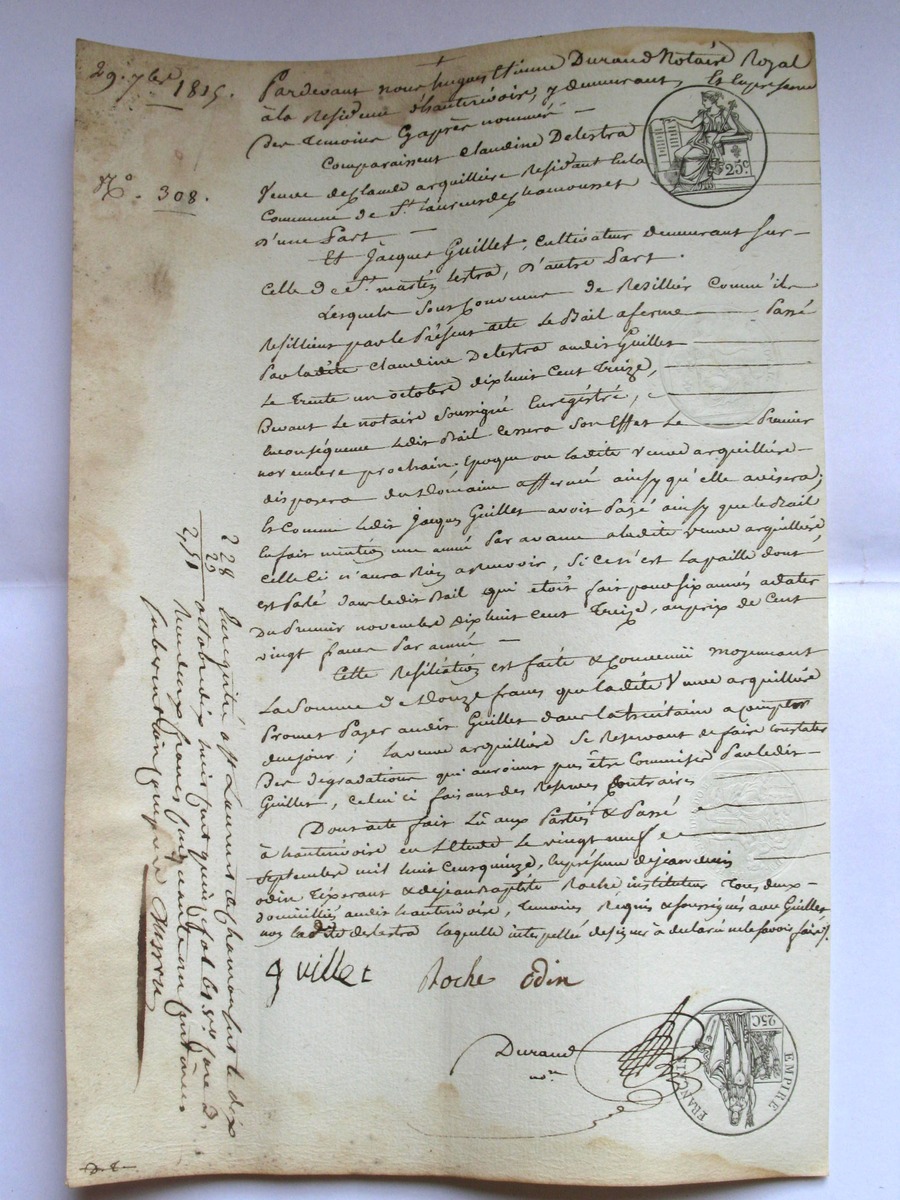 29. 7bre 1815.
N.o 308.
Pardevant nous hugues Etienne Durand Notaire Royal
à la Residence d'hauterivoire, y demeurant, Et En presence
des temoins Cy après nommés —
Comparaissent Claudine Delestra
Veuve de Claude arquillière Residant En la
Commune de St. Laurent de Chamousset
d'une Part —
Et Jacques Guillet, Cultivateur demeurant sur
Celle de St. martin lestra, d'autre Part.
Lesquels sont Convenus de Resillier Comm'ils
Resillient par le Présent acte Le Bail a ferme Passé
Par ladite Claudine Delestra audit Guillet
Le trente un octobre dix huit Cent treize,
Devant Le notaire Soussigné Enrégistré,
En conséquence Ledit Bail Cessera Son Effet Le Premier
novembre prochain. Epoque ou ladite Veuve arquillière
disposera du domaine affermé ainsy qu'elle avisera;
Et Comme Ledit Jacques Guillet avoit Payé ainsy que le Bail
En fait mention une année Par avance a ladite Veuve arquillière
Celle Ci n'aura Rien a recevoir, Si Ce n'est La paille dont
est Parlé dans ledit Bail qui étoit fait pour Six années a dater
Du Premier novembre dix huit Cent treize, au prix de Cent
vingt francs Par année —
Cette Résiliation est faite & Convenue moyennant
La Somme de douze francs que ladite Veuve arquillière
Promet Payer audit Guillet dans la huitaine a Compter
du jour; La veuve arquillière Se Reservant de faire Constater
Des dégradations qui auroient pu être Commises Par ledit
Guillet, Celui ci faisant des Reserves Contraires
Dont acte fait Lû aux Parties & Passé
à hauterivoire en L'Etude Le vingt neuf
Septembre mil huit Cent quinze, En présence de jean
odin Tixerant & de jean Baptiste Roche instituteur Tous deux
domiciliés audit hauterivoire, temoins Requis & Soussignés avec Guillet
non ladite delestra laquelle interpellée de signer a declaré ne le Savoir faire.
Guillet Roche odin
Durand
nre
25c.
EMPIRE FRANÇAIS
25C
2 28
23
2,51
Enregistré à St Laurent de chamousset le dix
octobre dix huit cent quinze fol 68 Ro Case 2.
Reçu deux francs cinquante un centimes